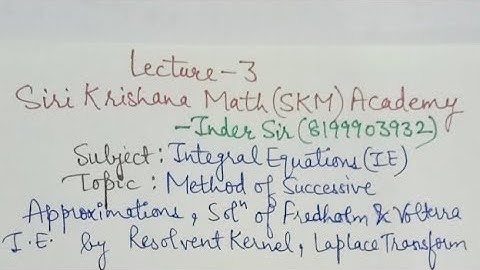 Lecture-3
Siri Krishana Math (SKM) Academy
-Inder Sir (8199903932)
Subject: Integral Equations (IE)
Topic: Method of Successive
Approximations, Solⁿ of Fredholm & Volterra
I.E. by Resolvent Kernel, Laplace Transform